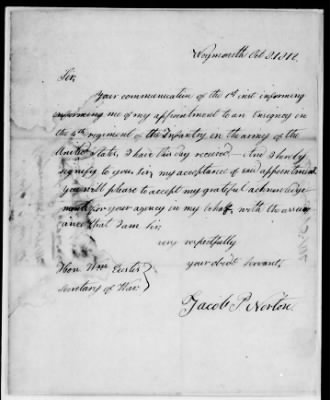 Weymouth Oct 8 1812.
Sir,
Your communication of the 1st inst informing
informing me of my appointment to an Ensigncy in
the 9th regiment of the Infantry, in the army of the
United States, I have this day received. And I hereby
signify to you Sir, my acceptance of said appointment.
You will please to accept my grateful acknowledge
ments for your agency in my behalf, with the assur
ance that I am Sir,
very respectfully
your obedt servant,
Hon. Wm Eustis
Secretary of War.
Jacob P. Norton